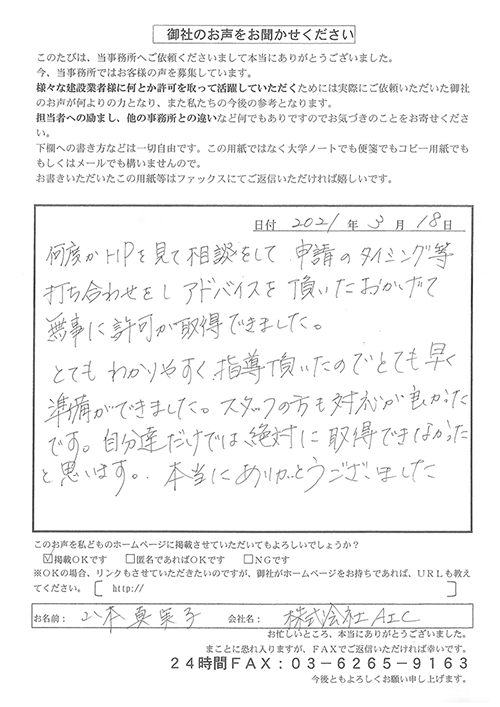 御社のお声をお聞かせください
このたびは、当事務所へご依頼くださいまして本当にありがとうございました。
今、当事務所ではお客様の声を募集しています。
様々な建設業者様に何とか許可を取って活躍していただくためには実際にご依頼いただいた御社
のお声が何よりの力となり、また私たちの今後の参考となります。
担当者への励まし、他の事務所との違いなど何でもありですのでお気づきのことをお寄せくださ
い。
下欄への書き方などは一切自由です。この用紙ではなく大学ノートでも便箋でもコピー用紙でも
もしくはメールでも構いませんので。
お書きいただいたこの用紙等はファックスにてご返信いただければ嬉しいです。
日付 2021 年 3 月 18 日
何度かHPを見て相談をして 申請のタイミング等
打ち合わせをし アドバイスを 頂いたおかげで
無事に許可が取得できました。
とても わかりやすく 指導頂いたので とても早く
準備ができました。スタッフの方も対応が良かった
です。自分達だけでは絶対に取得できなかった
と思います。本当にありがとうございました
このお声を私どものホームページに掲載させていただいてもよろしいでしょうか？
☑掲載ＯＫです □匿名であればＯＫです □ＮＧです
※ＯＫの場合、リンクもさせていただきたいのですが、御社がホームページをお持ちであれば、ＵＲＬも教え
てください。 〔 http:// 〕
お名前： 本 真実子 会社名： 株式会社AIC
お忙しいところ、本当にありがとうございました。
まことに恐れ入りますが、ＦＡＸでご返信いただければ幸いです。
２４時間ＦＡＸ：０３－６２６５－９１６３
今後ともよろしくお願い申し上げます。